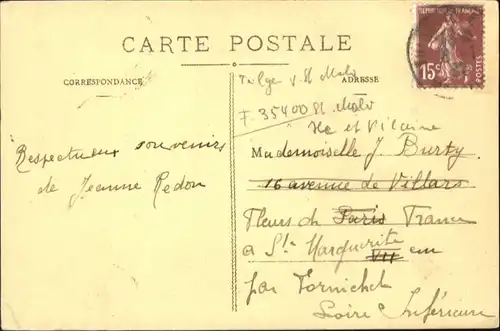 CARTE POSTALE
CORRESPONDANCE
ADRESSE
REPUBLIQUE FRANÇAISE
15c
POSTES
St Malo
F. 35400 St Malo
Ile et Vilaine
Respectueux souvenirs
de Jeanne Redon
Mademoiselle J. Burty
16 avenue de Villars
Fleurs de Paris France
a Ste Marguerite en
VII
par Pornichet
Loire Inférieure